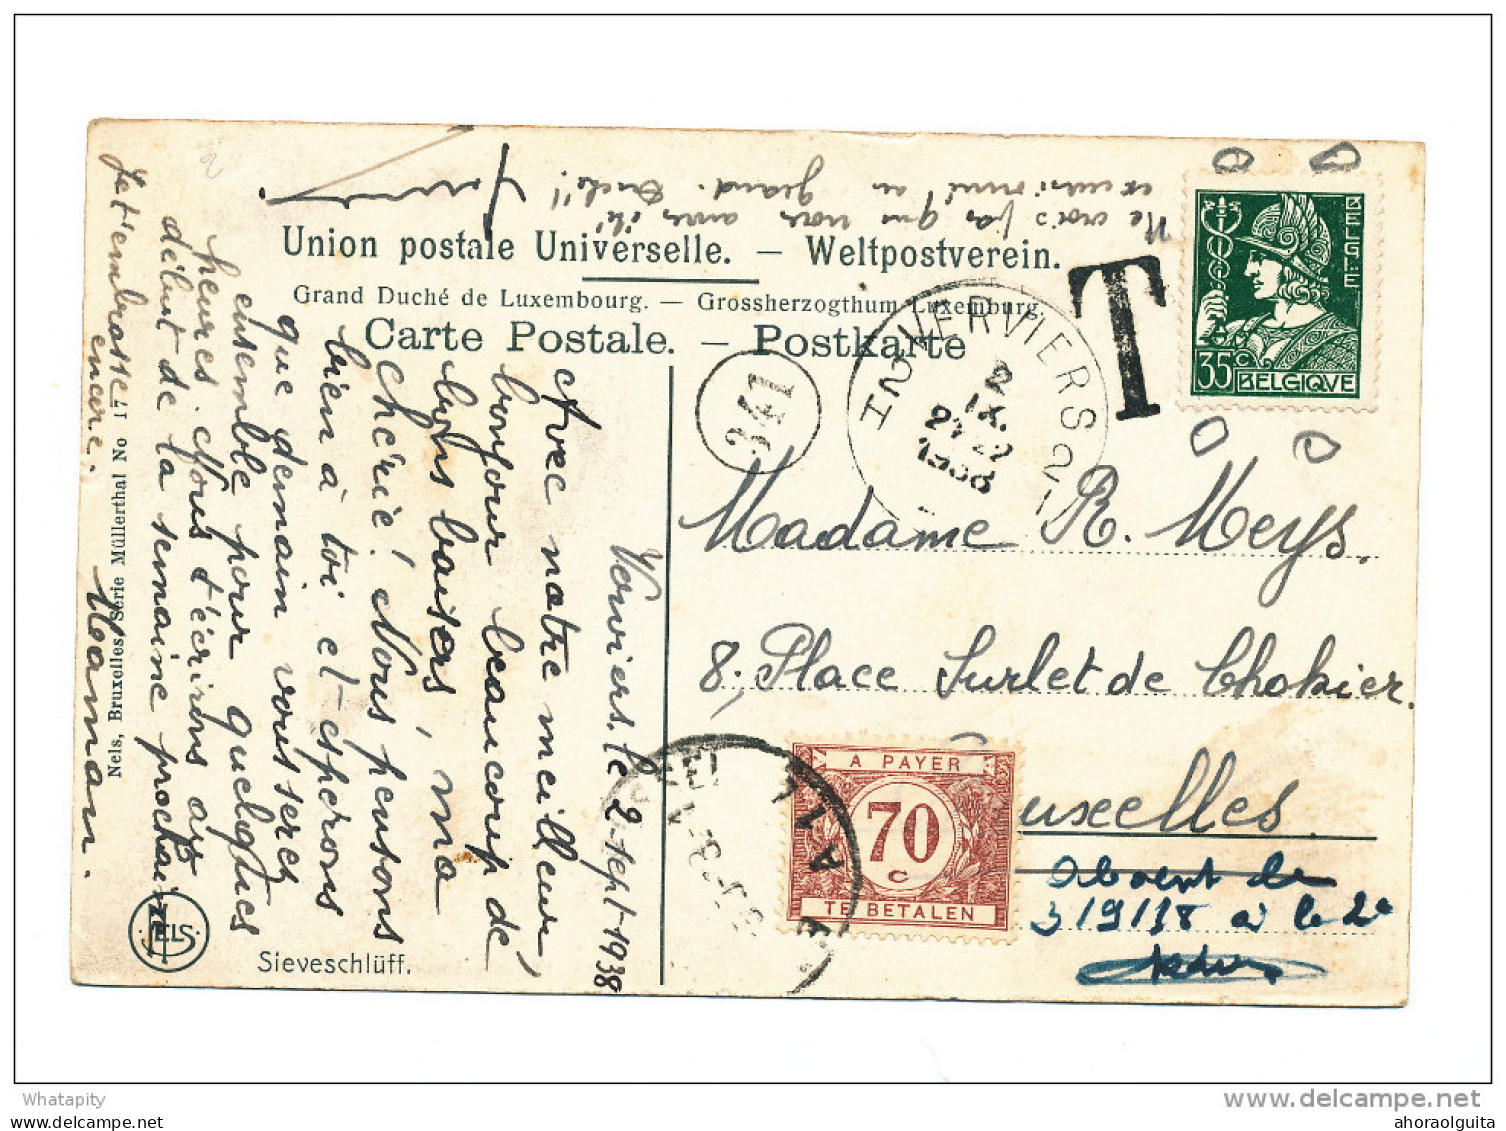 Ne crois pas que nous avons été
excursionné au grand. Duché!!
Union postale Universelle. — Weltpostverein.
Grand Duché de Luxembourg. — Grossherzogthum Luxemburg.
Carte Postale. — Postkarte
T
BELGIE
35c
BELGIQVE
341
1N VERVIERS 2N
2
IX.
21-22
1938
Verviers. le 2-sept-1938
Avec notre meilleur
bonjour beaucoup de
bons baisers, ma
chérie! Nous pensons
bien à toi et espérons
que demain vous serez
ensemble pour quelques
heures. Nous t'écrirons au
début de la semaine prochaine
Je t'embrasse
encore.
Maman.
Madame R. Meys.
8, Place Surlet de Chokier.
Bruxelles.
A PAYER
70
c
TE BETALEN
Absent le
3/9/38 à le 2e
Nels, Bruxelles Série Müllerthal No 17
NELS
Sieveschlüff.
Whatapity
delcampe.net
ahoraolguita